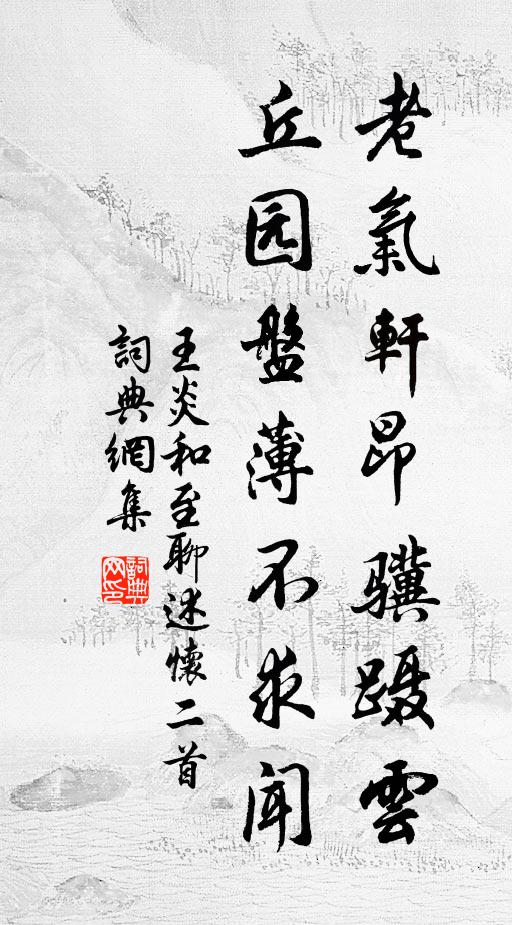 老氣軒昂骥蹑雲
丘园盤薄不求闻
王炎和至聊述懷二首
詞典網集
詞典网印